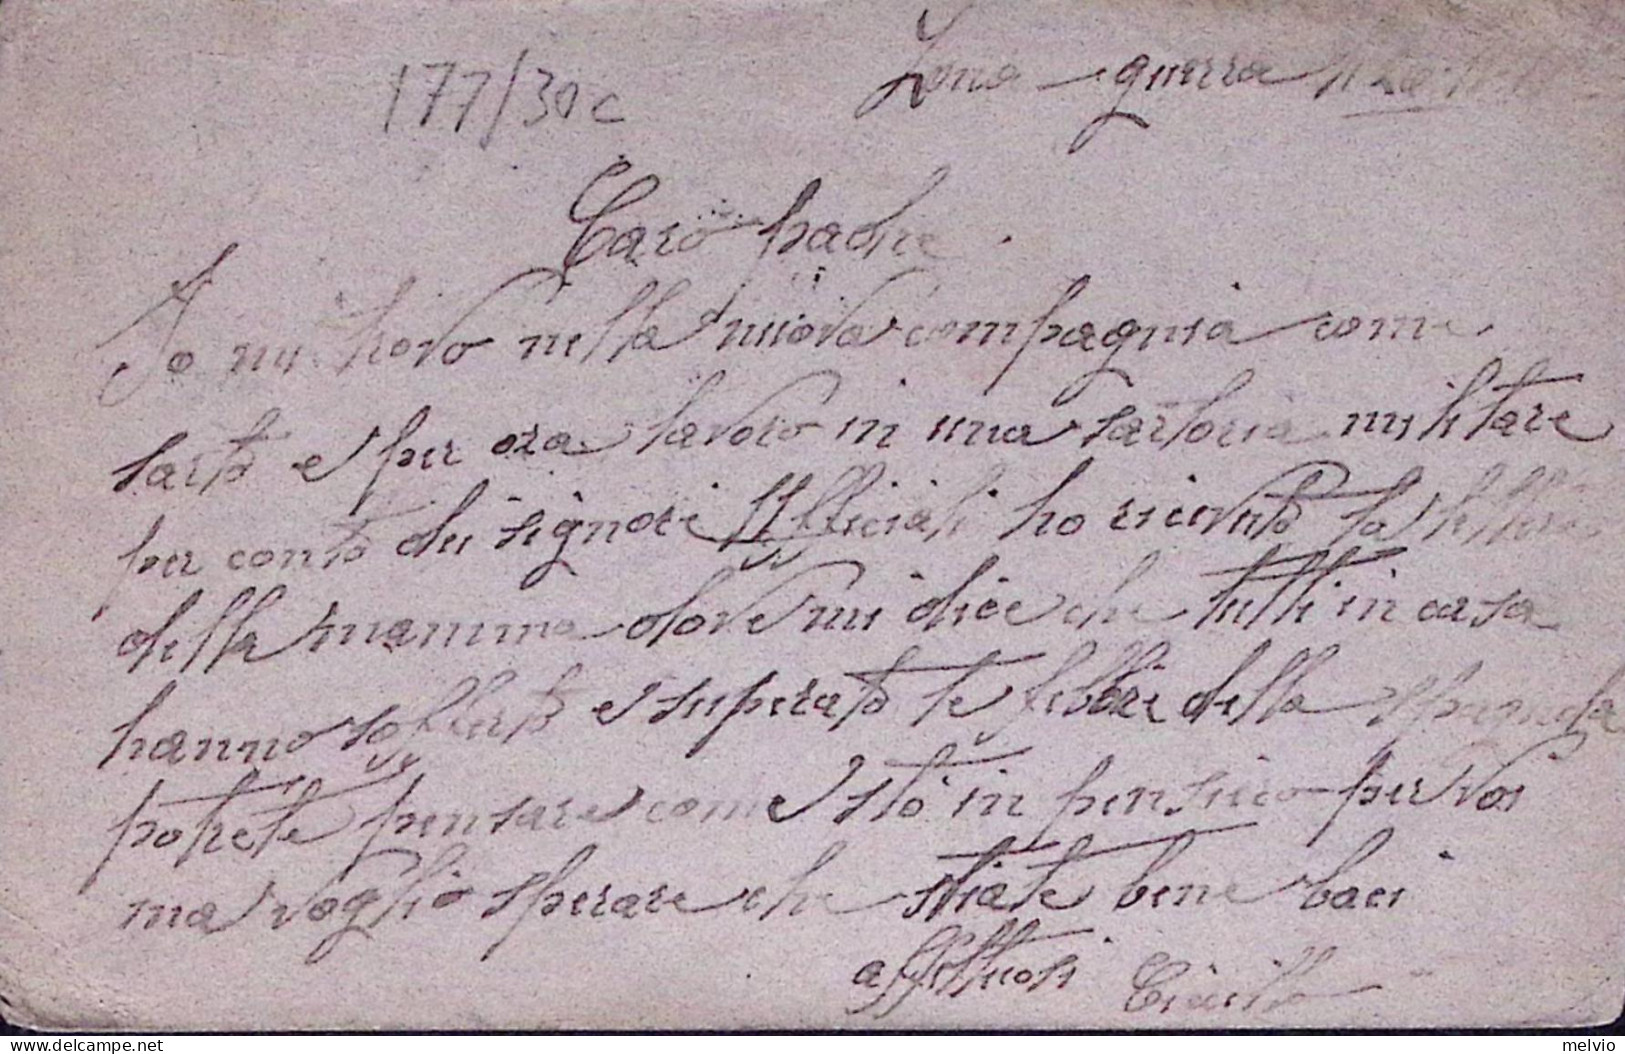 177/30c
Zona guerra
Caro padre
Io mi trovo nella nuova compagnia come
sarto e per ora lavoro in una sartoria militare
per conto dei signori Ufficiali ho ricevuto la lettera
della mamma dove mi dice che tutti in casa
hanno sofferto e superato le febbri della spagnola
potrete pensare come stò in pensiero per voi
ma voglio sperare che stiate bene baci
affettuosi
melvio